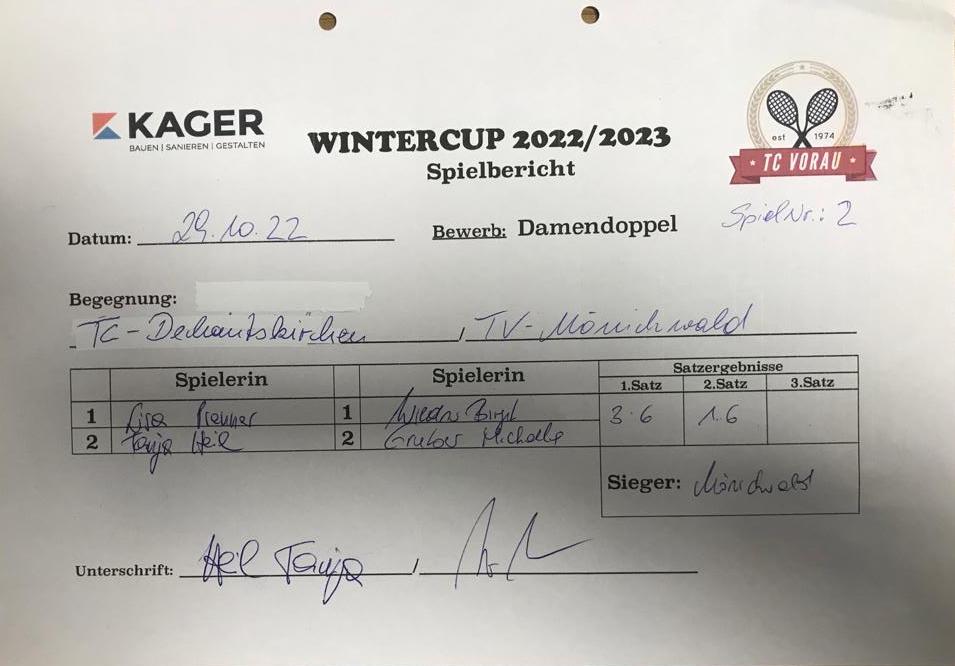 KAGER
BAUEN | SANIEREN | GESTALTEN
WINTERCUP 2022/2023
Spielbericht
est 1974
TC VORAU
Datum: 29.10.22
Bewerb: Damendoppel
Spiel Nr.: 2
Begegnung:
TC-Dechantskirchen / TV-Mönichwald
Spielerin Spielerin Satzergebnisse
1.Satz 2.Satz 3.Satz
1 Lisa 1 3-6 1-6
2 Tanja Heil 2 Gruber Michaela
Sieger: Mönichwald
Unterschrift: Heil Tanja /